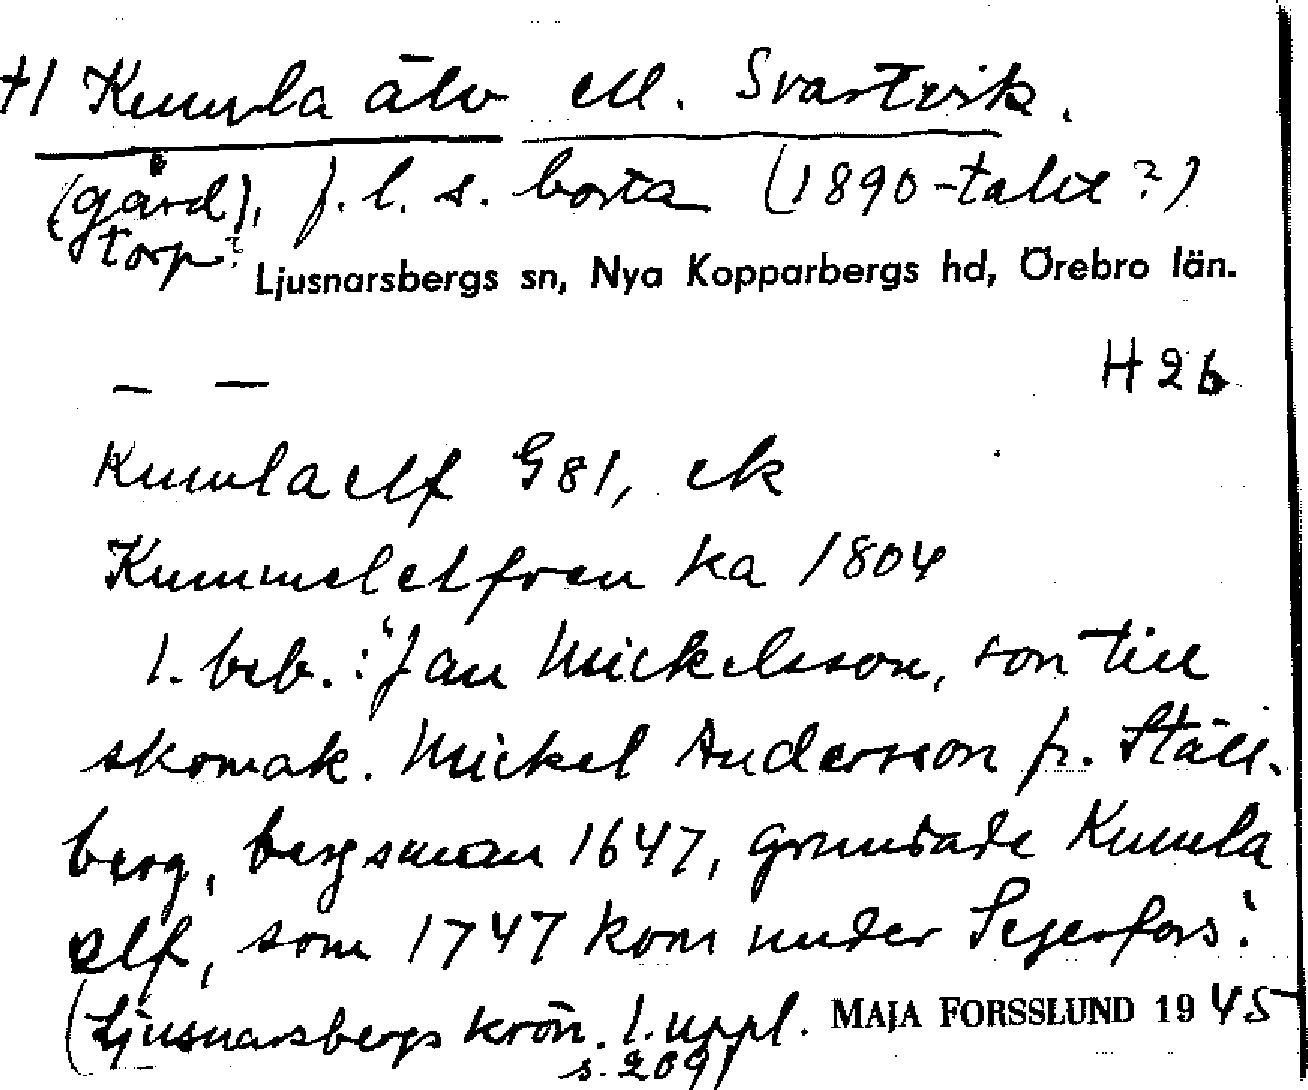 +1 Kumla älv ell. Svartvik.
(gård), f. l. s. borta (1890-talet?)
torp?
Ljusnarsbergs sn, Nya Kopparbergs hd, Örebro län.
— — H 26
Kumla elf G81, ek
Kummelelfven ka 1804
1. beb.: "Jan Mickelsson, son till
skomak. Mickel Andersson fr. Ställ-
berg, bergsman 1647, grundade Kumla
elf, som 1747 kom under Segerfors."
(Ljusnarsbergs krön. 1. uppl. MAJA FORSSLUND 1945
s. 209)